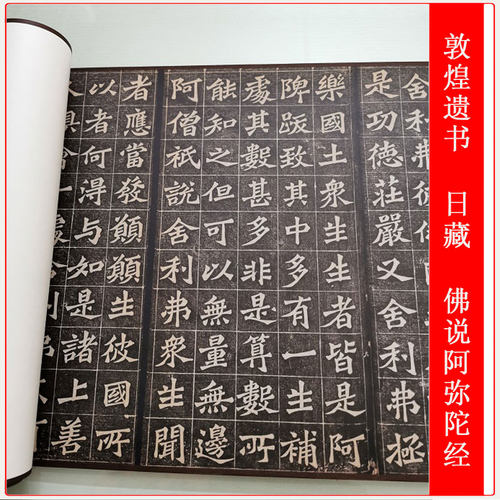 敦煌遗书 日藏 佛说阿弥陀经
舍利弗
是功德莊嚴又舍利弗極
樂國土衆生生者皆是阿
陴跋致其中多有一生補
處其數甚多非是筭數所
能知之但可以無量無邊
阿僧祇說舍利弗衆生聞
者應當發願願生彼國所
以者何淂与如是諸上善
人俱會一處舍利弗